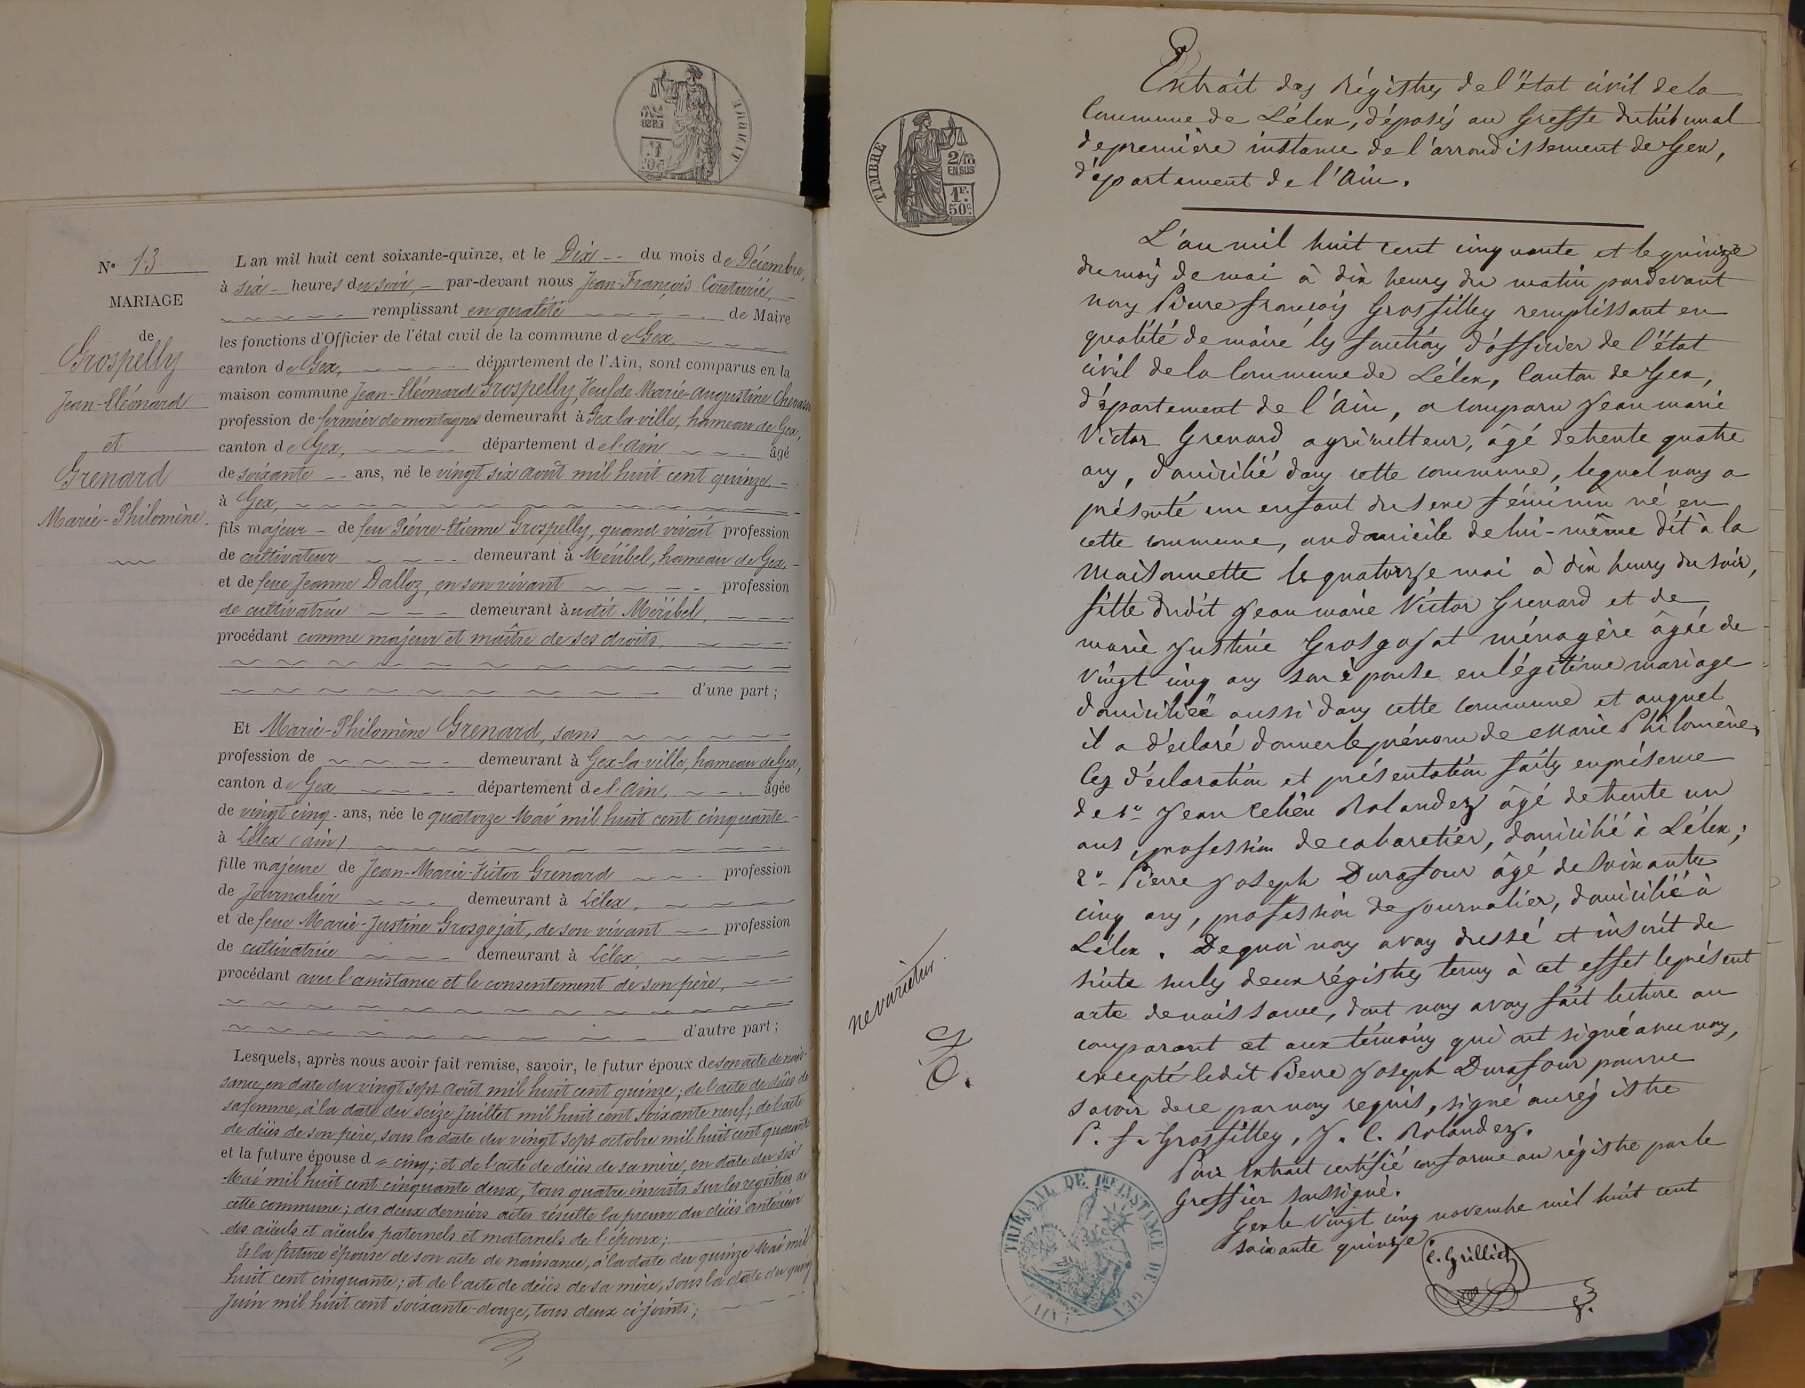 N° 13
MARIAGE
de
Grospelly
Jean-Eléonard
et
Grenard
Marie-Philomène
L'an mil huit cent soixante-quinze, et le Dix du mois de Décembre,
à six heures du soir, par-devant nous Jean-François Couturié,
remplissant en qualité de Maire
les fonctions d'Officier de l'état civil de la commune de Gex,
canton de Gex, département de l'Ain, sont comparus en la
maison commune Jean-Eléonard Grospelly, Veuf de Marie-Augustine
profession de fermier de montagnes demeurant à Gex-la-ville, hameau de Gex,
canton de Gex, département de l'Ain âgé
de soixante ans, né le vingt six août mil huit cent quinze
à Gex,
fils majeur de feu Pierre-Etienne Grospelly, quand vivait profession
de cultivateur demeurant à Méribel, hameau de Gex,
et de feue Jeanne Dalloz, en son vivant profession
de cultivatrice demeurant audit Méribel,
procédant comme majeur et maître de ses droits,
d'une part ;
Et Marie-Philomène Grenard, sans
profession de demeurant à Gex-la-ville, hameau de Gex,
canton de Gex département de l'Ain, âgée
de vingt cinq ans, née le quatorze Mai mil huit cent cinquante
à Lélex (Ain)
fille majeure de Jean-Marie-Victor Grenard profession
de journalier demeurant à Lélex,
et de feue Marie-Justine Grosgojat, de son vivant profession
de cultivatrice demeurant à Lélex,
procédant avec l'assistance et le consentement de son père,
d'autre part ;
Lesquels, après nous avoir fait remise, savoir, le futur époux de son acte de nais-
sance, en date du vingt sept août mil huit cent quinze ; de l'acte de décès de
sa femme, à la date du seize Juillet mil huit cent soixante neuf ; de l'acte
de décès de son père, sous la date du vingt sept octobre mil huit cent quarante
et la future épouse d = cinq ; et de l'acte de décès de sa mère, en date du six
Mai mil huit cent cinquante deux, tous quatre inscrits sur les registres de
cette commune ; des deux derniers actes résulte la preuve du décès antérieur
des aïeuls et aïeules paternels et maternels de l'époux ;
Et la future épouse de son acte de naissance, à la date du quinze Mai mil
huit cent cinquante ; et de l'acte de décès de sa mère, sous la date du
Juin mil huit cent soixante-douze, tous deux ci-joints ;
TIMBRE
2/10
EN SUS
1F.
50c.
Extrait des Régistres de l'État civil de la
Commune de Lélex, déposés au Greffe du tribunal
de première instance de l'arrondissement de Gex,
département de l'Ain.
L'an mil huit cent cinquante et le quinze
du mois de mai à dix heures du matin pardevant
nous Pierre françois Grosfilley remplissant en
qualité de maire les fonctions d'officier de l'état
civil de la Commune de Lélex, Canton de Gex,
département de l'Ain, a comparu Jean marie
Victor Grenard agriculteur, âgé de trente quatre
ans, domicilié dans cette commune, lequel nous a
présenté un enfant du sexe féminin né en
cette commune, au domicile de lui-même dit à la
Maisonnette le quatorze mai à dix heures du soir,
fille dudit Jean marie Victor Grenard et de
marie Justine Grosgojat ménagère âgée de
vingt cinq ans son épouse en légitime mariage
domiciliée aussi dans cette commune et auquel
il a déclaré donner le prénom de Marie Philomène,
Ces déclaration et présentation faites en présence
de 1° Jean Célien Rolandez âgé de trente un
ans, profession de cabaretier, domicilié à Lélex ;
2° Pierre Joseph Durafour âgé de soixante
cinq ans, profession de journalier, domicilié à
Lélex. De quoi nous avons dressé et inscrit de
suite sur les deux régistres tenus à cet effet le présent
acte de naissance, dont nous avons fait lecture au
comparant et aux témoins qui ont signé avec nous,
excepté ledit Pierre Joseph Durafour pour ne
savoir de ce par nous requis, signé au régistre
P. f. Grosfilley, J. C. Rolandez.
Pour extrait certifié conforme au régistre par le
Greffier soussigné.
Gex le vingt cinq novembre mil huit cent
soixante quinze.
C. Grillet
ne varietur
TRIBUNAL DE 1RE INSTANCE DE GEX
(AIN)